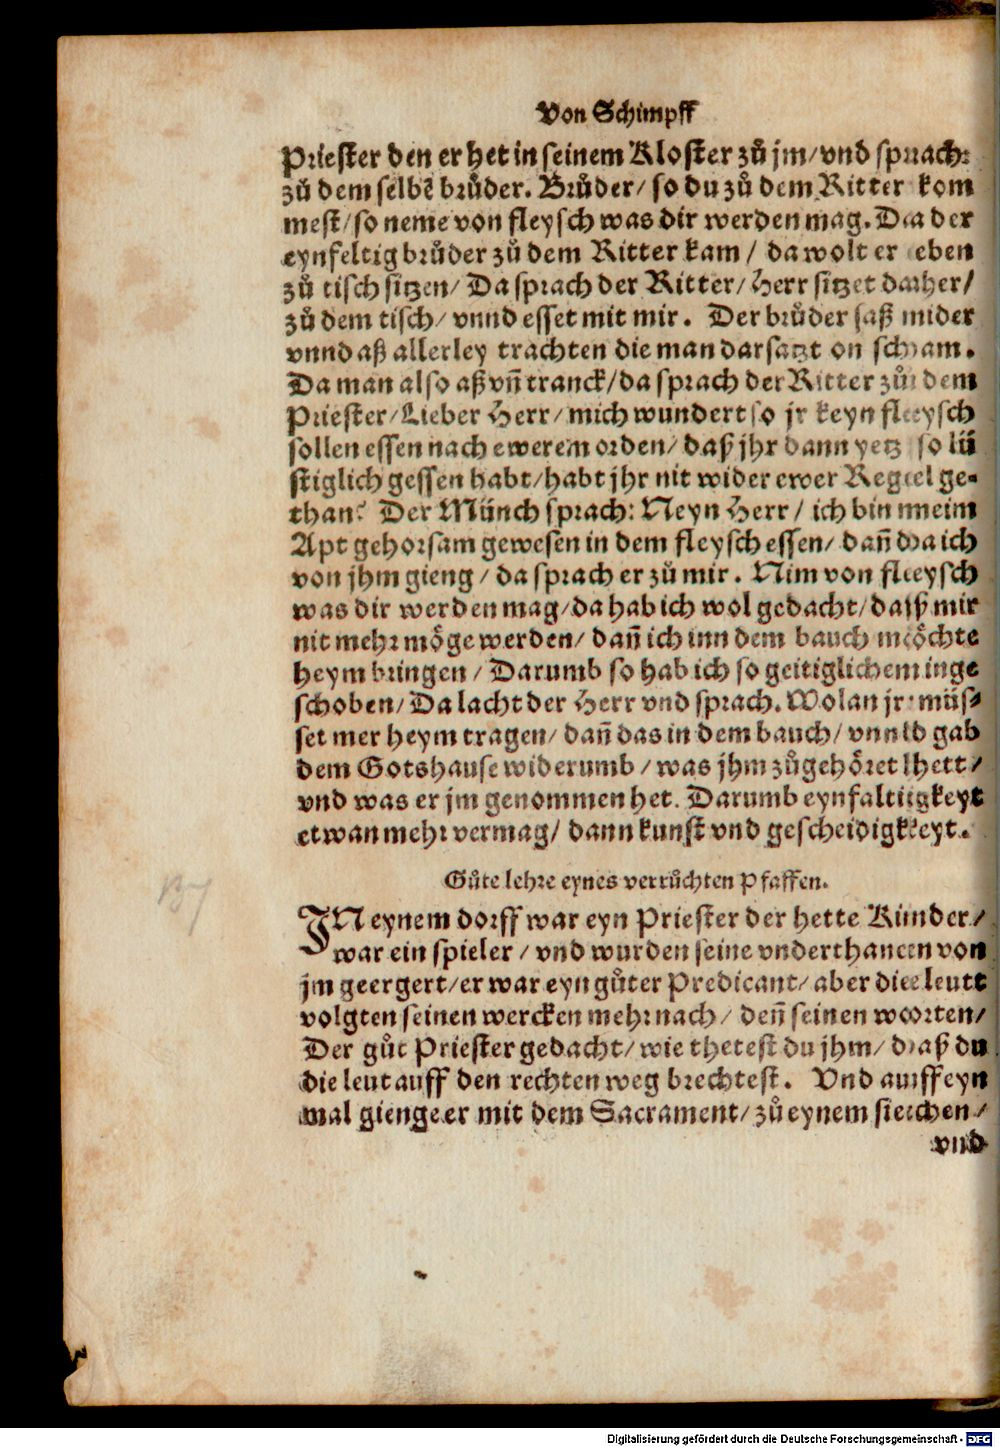 Von Schimpff
Priester den er het in seinem Kloster zů jm/vnd sprach:
zů dem selbē brůder. Brůder/ so du zů dem Ritter kom
mest/so neme von fleysch was dir werden mag. Da der
eynfeltig brůder zů dem Ritter kam / da wolt er eben
zů tisch sitzen/ Da sprach der Ritter/ Herr sitzet daher/
zů dem tisch/ vnnd esset mit mir. Der brůder saß nider
vnnd aß allerley trachten die man darsatzt on scham.
Da man also aß vn̄ tranck/da sprach der Ritter zů dem
Priester/Lieber Herr/ mich wundert so jr keyn fleysch
sollen essen nach ewerem orden/ daß jhr dann yetz so lü
stiglich gessen habt/habt jhr nit wider ewer Regel ge-
than? Der Münch sprach: Neyn Herr/ ich bin meim
Apt gehorsam gewesen in dem fleysch essen/ dan̄ da ich
von jhm gieng / da sprach er zů mir. Nim von fleysch
was dir werden mag/da hab ich wol gedacht/ daß mir
nit mehr möge werden/ dan̄ ich inn dem bauch möchte
heym bringen / Darumb so hab ich so geitiglichem inge
schoben/ Da lacht der Herr vnd sprach. Wolan jr müs-
set mer heym tragen/ dan̄ das in dem bauch/ vnnd gab
dem Gotshause widerumb / was jhm zůgehöret hett/
vnd was er jm genommen het. Darumb eynfaltigkeyt
etwan mehr vermag/ dann kunst vnd gescheidigkeyt.
Gůte lehre eynes verrůchten Pfaffen.
IN eynem dorff war eyn Priester der hette Kinder/
war ein spieler / vnd wurden seine vnderthanen von
jm geergert/er war eyn gůter Predicant/ aber die leutt
volgten seinen wercken mehr nach/ den̄ seinen worten/
Der gůt Priester gedacht/ wie thetest du jhm/ daß du
die leut auff den rechten weg brechtest. Vnd auff eyn
mal gienge er mit dem Sacrament/ zů eynem siechen/
vnd
137
Digitalisierung gefördert durch die Deutsche Forschungsgemeinschaft - DFG